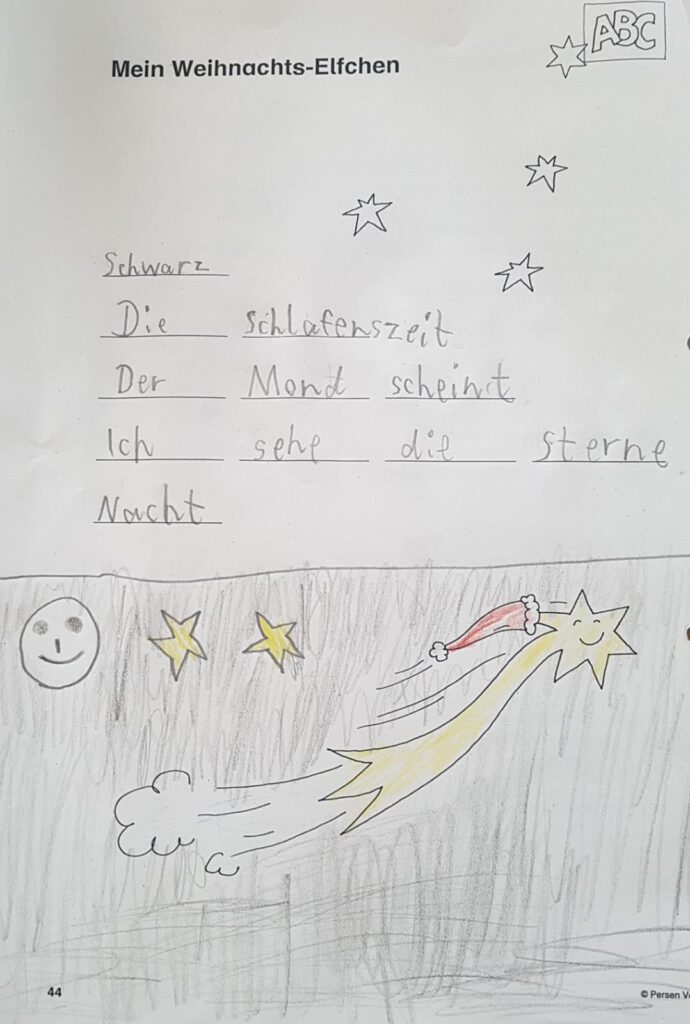 ABC
Mein Weihnachts-Elfchen
Schwarz
Die schlafenszeit
Der Mond scheint
Ich sehe die sterne
Nacht
44
© Persen